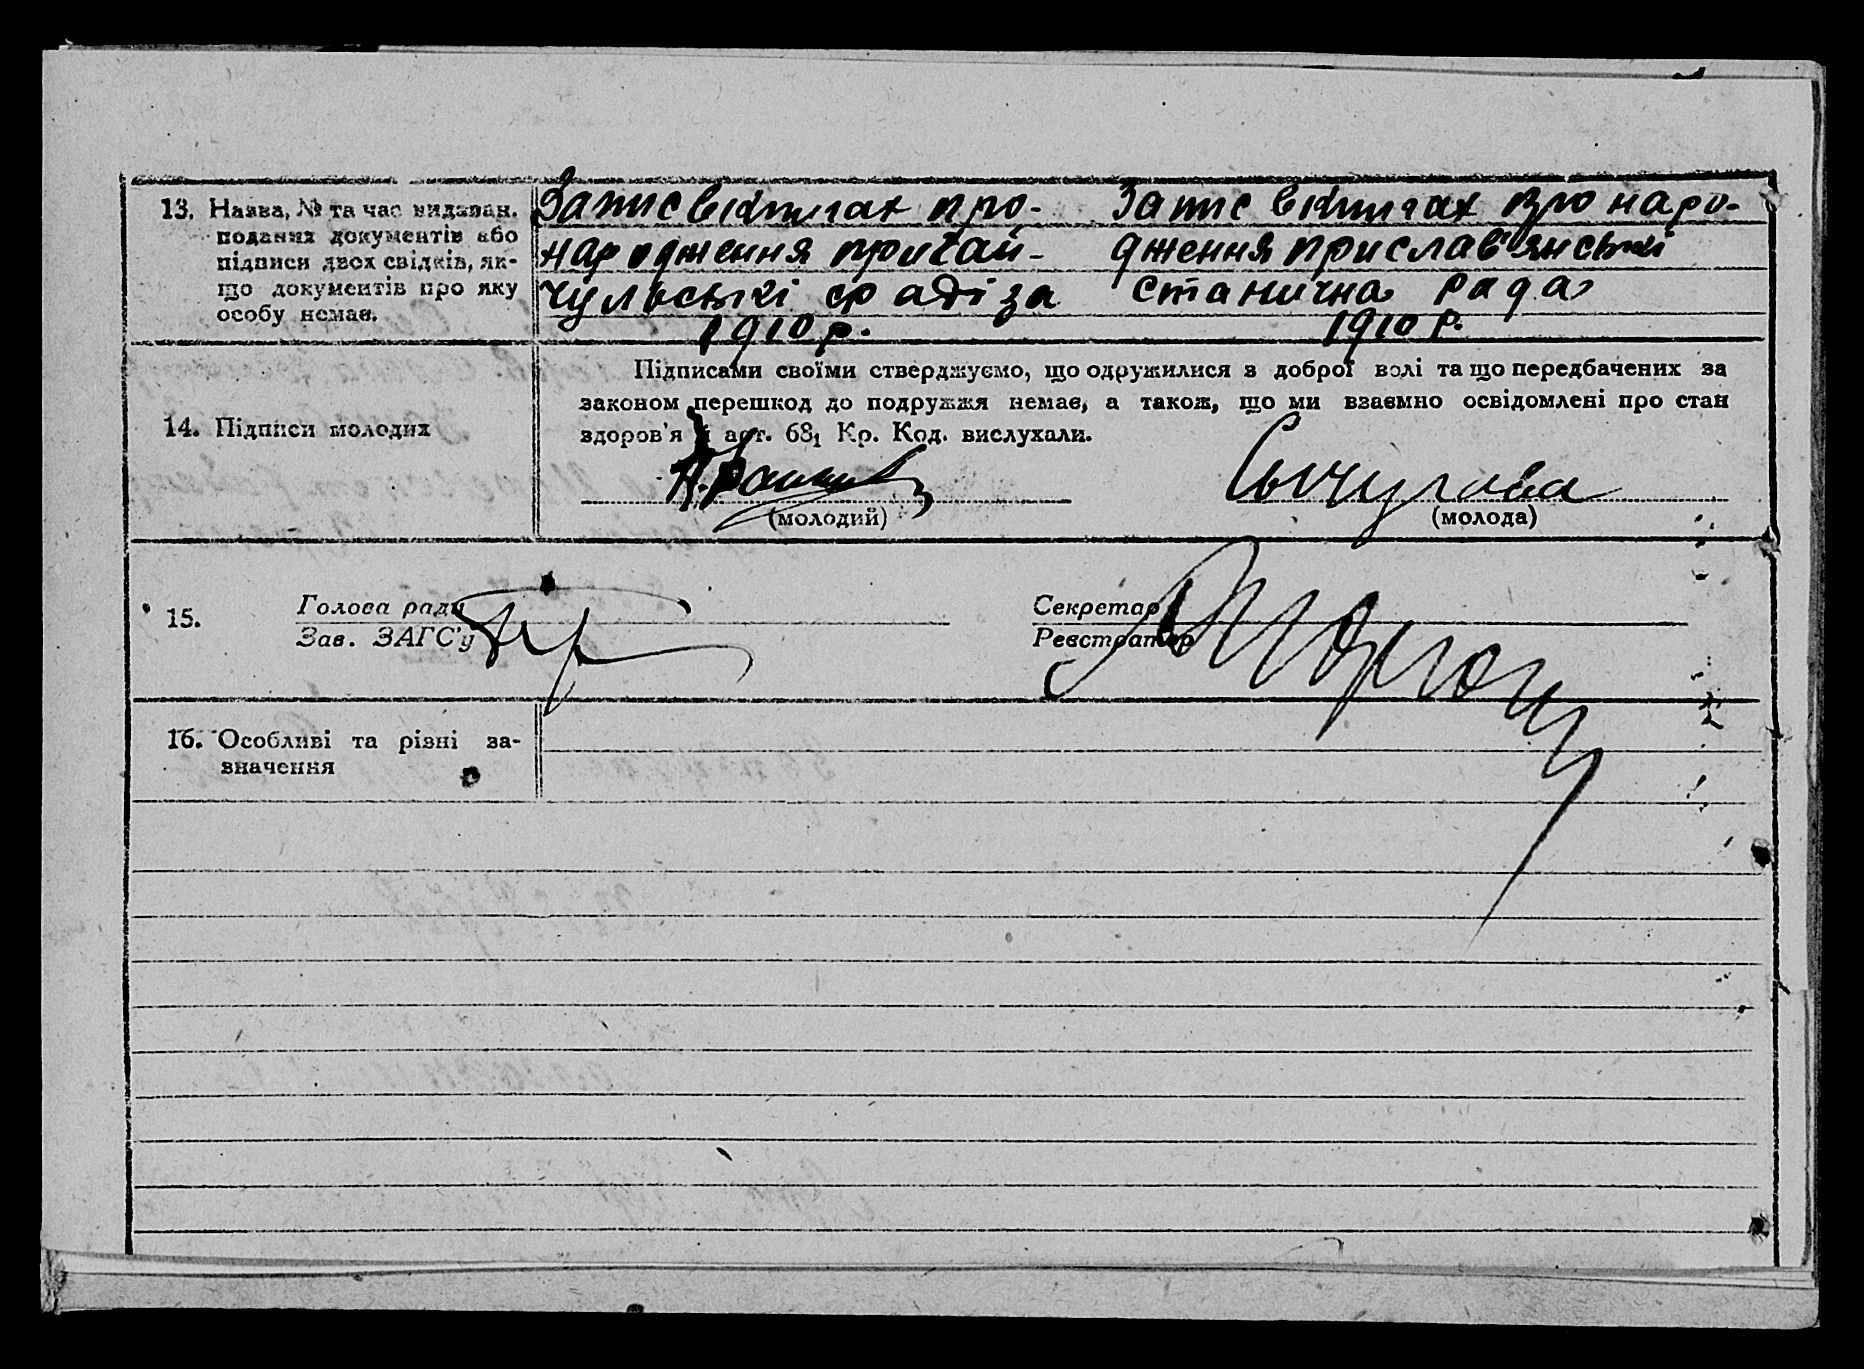 13. Назва, № та час видаван.
поданих документів або
підписи двох свідків, як-
що документів про яку
особу немає.
Запис в книгах про-
народження при Хай-
чульські сс раді за
1910 р.
Запис в книгах про наро-
дження при слав'янські
станична рада
1910 р.
14. Підписи молодих
Підписами своїми стверджуємо, що одружилися з доброї волі та що передбачених за
законом перешкод до подружжя немає, а також, що ми взаємно освідомлені про стан
здоров'я й арт. 68₁ Кр. Код. вислухали.
Сычугова
(молодий)
(молода)
15.
Голова ради
Зав. ЗАГС'у
Секретар
Реєстратор
16. Особливі та різні за-
значення